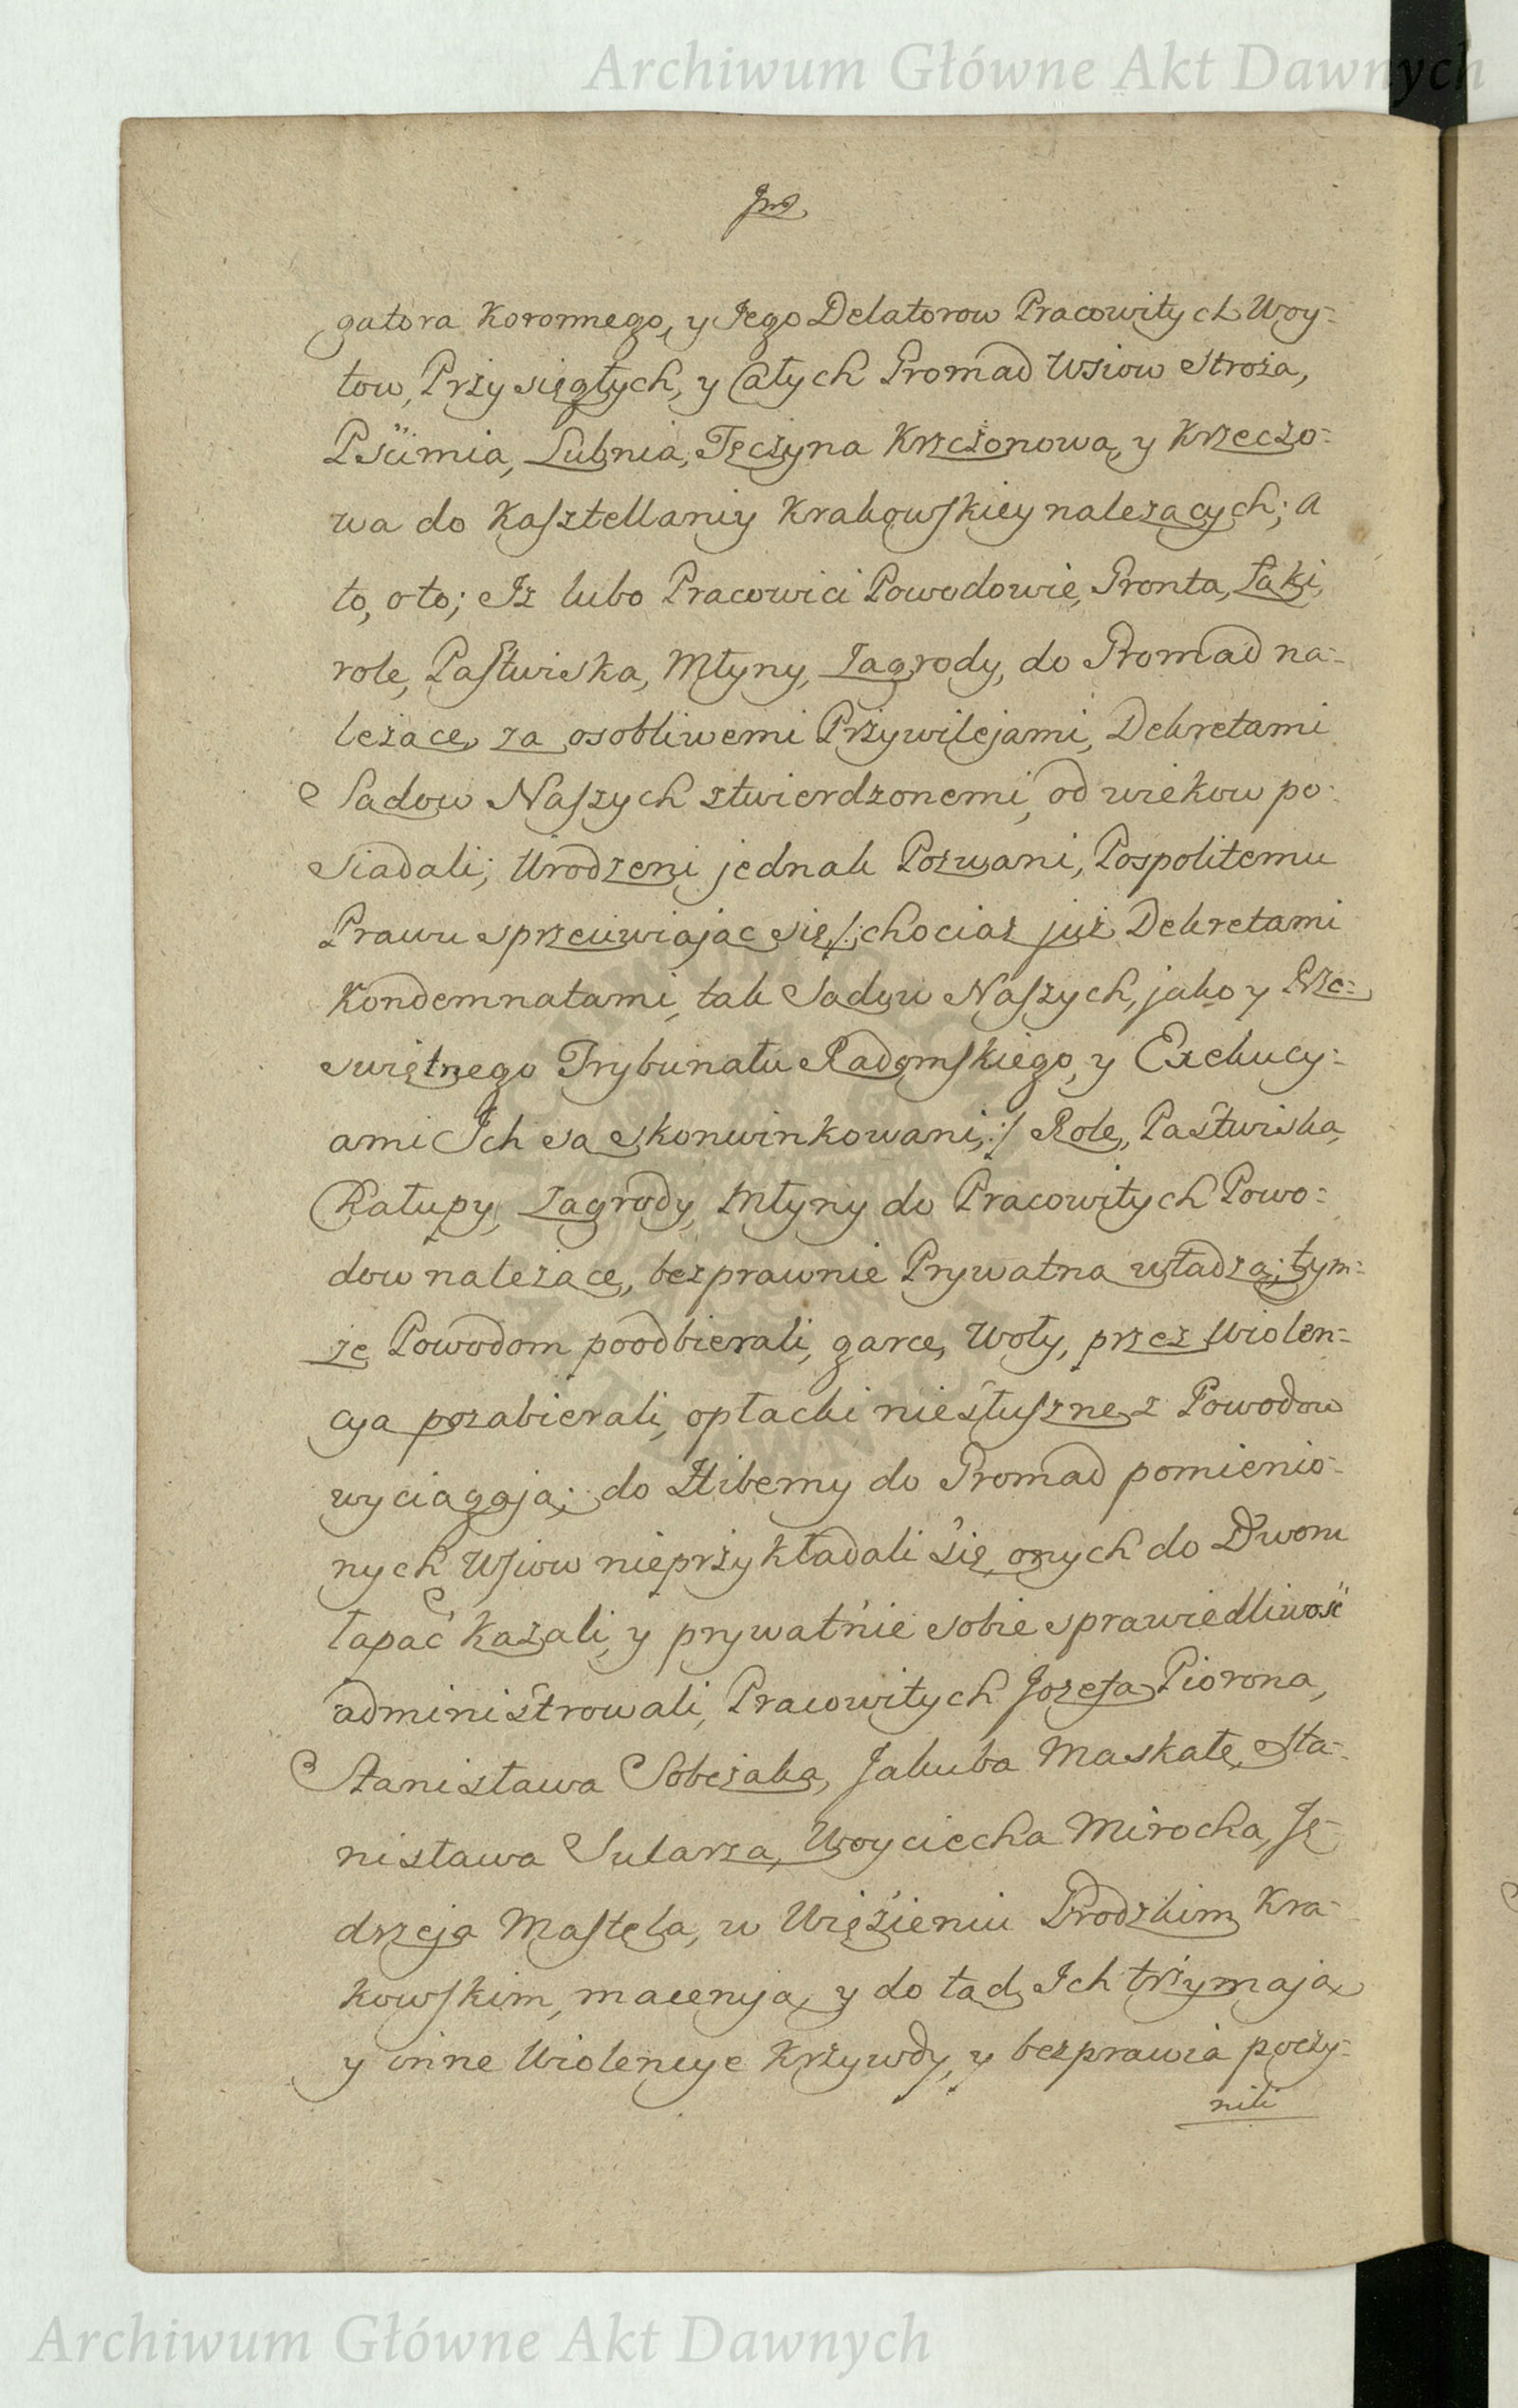 Archiwum Główne Akt Dawnych
gatora Koronnego, y Jego Delatorow Pracowitych Woy=
tow, Przysięgłych, y Całych Gromad Wsiow Stroża,
Pścimia, Lubnia, Tęczyna Krzczonowa, y Krzeczo=
wa do Kasztellaniy Krakowskiey należących; a
to, oto; Iż lubo Pracowici Powodowie, Gronta, Łąki,
role, Pastwiska, Młyny, Zagrody, do Gromad na=
leżące, za osobliwemi Przywilejami, Dekretami
Sądow Naszych stwierdzonemi, od wiekow po=
siadali; Urodzeni jednak Pozwani, Pospolitemu
Prawu sprzeciwiając się /: chociaż już Dekretami
Kondemnatami, tak Sądow Naszych, jako y Prze=
swiętnego Trybunału Radomskiego, y Exekucy=
ami Ich są skonwinkowani, :/ Role, Pastwiska,
Chałupy, Zagrody, Młyny do Pracowitych Powo=
dow należące, bezprawnie Prywatną władzą, tym=
że Powodom poodbierali, garce, Woły, przez Wiolen=
cyą pozabierali, opłacki niesłuszne z Powodow
wyciągają; do Hiberny do Gromad pomienio=
nych Wsiow nieprzykładali się, onych do Dworu
łapać kazali, y prywatnie sobie sprawiedliwość
administrowali, Pracowitych Jozefa Piorona,
Stanisława Sobczaka, Jakuba Maskałę, Sta=
nisława Sularza, Woyciecha Mirocha, Ję=
drzeja Mastela, w Więzieniu Grodzkim Kra=
kowskim, macerują, y do tąd Ich trzymają,
y inne Wiolencye Krzywdy, y bezprawia poczy=
nili
Archiwum Główne Akt Dawnych